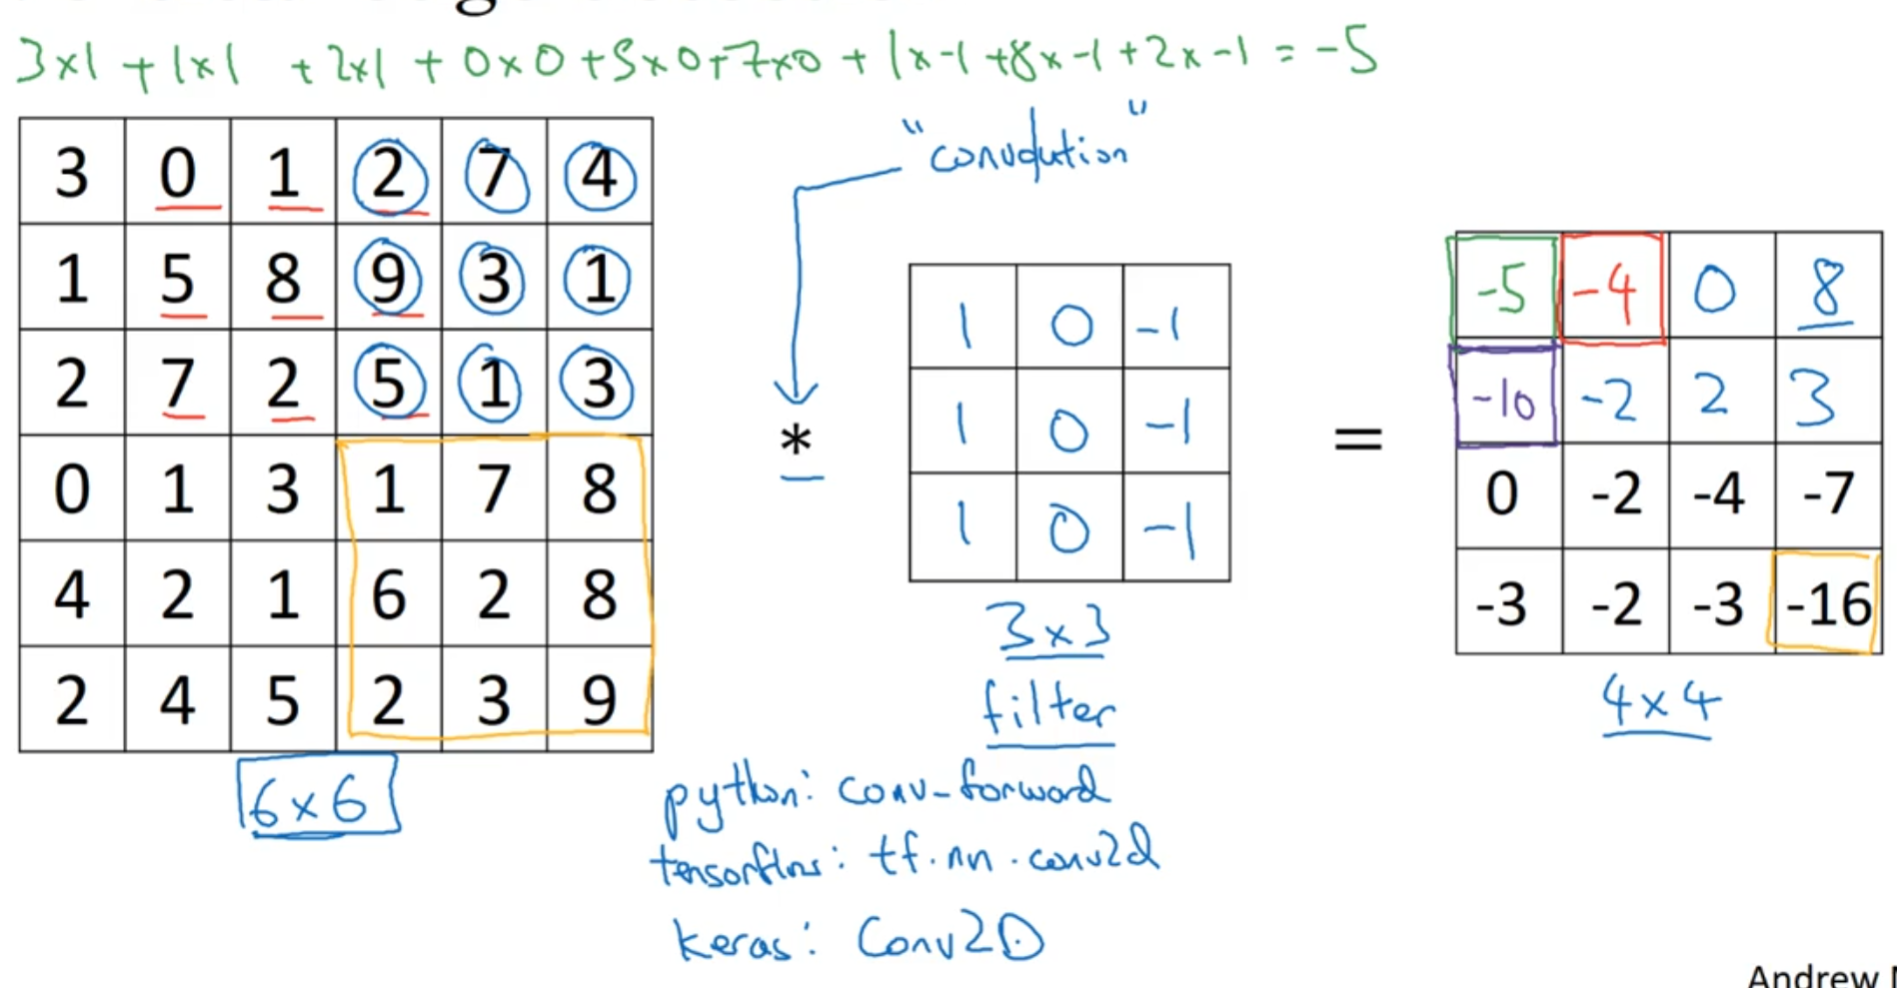 3x1 + 1x1 + 2x1 + 0x0 + 5x0 + 7x0 + 1x-1 + 8x-1 + 2x-1 = -5
"convolution"
3 0 1 2 7 4
1 5 8 9 3 1
2 7 2 5 1 3
0 1 3 1 7 8
4 2 1 6 2 8
2 4 5 2 3 9
6x6
*
1 0 -1
1 0 -1
1 0 -1
3x3
filter
=
-5 -4 0 8
-10 -2 2 3
0 -2 -4 -7
-3 -2 -3 -16
4x4
python: conv-forward
tensorflow: tf.nn.conv2d
keras: Conv2D
Andrew